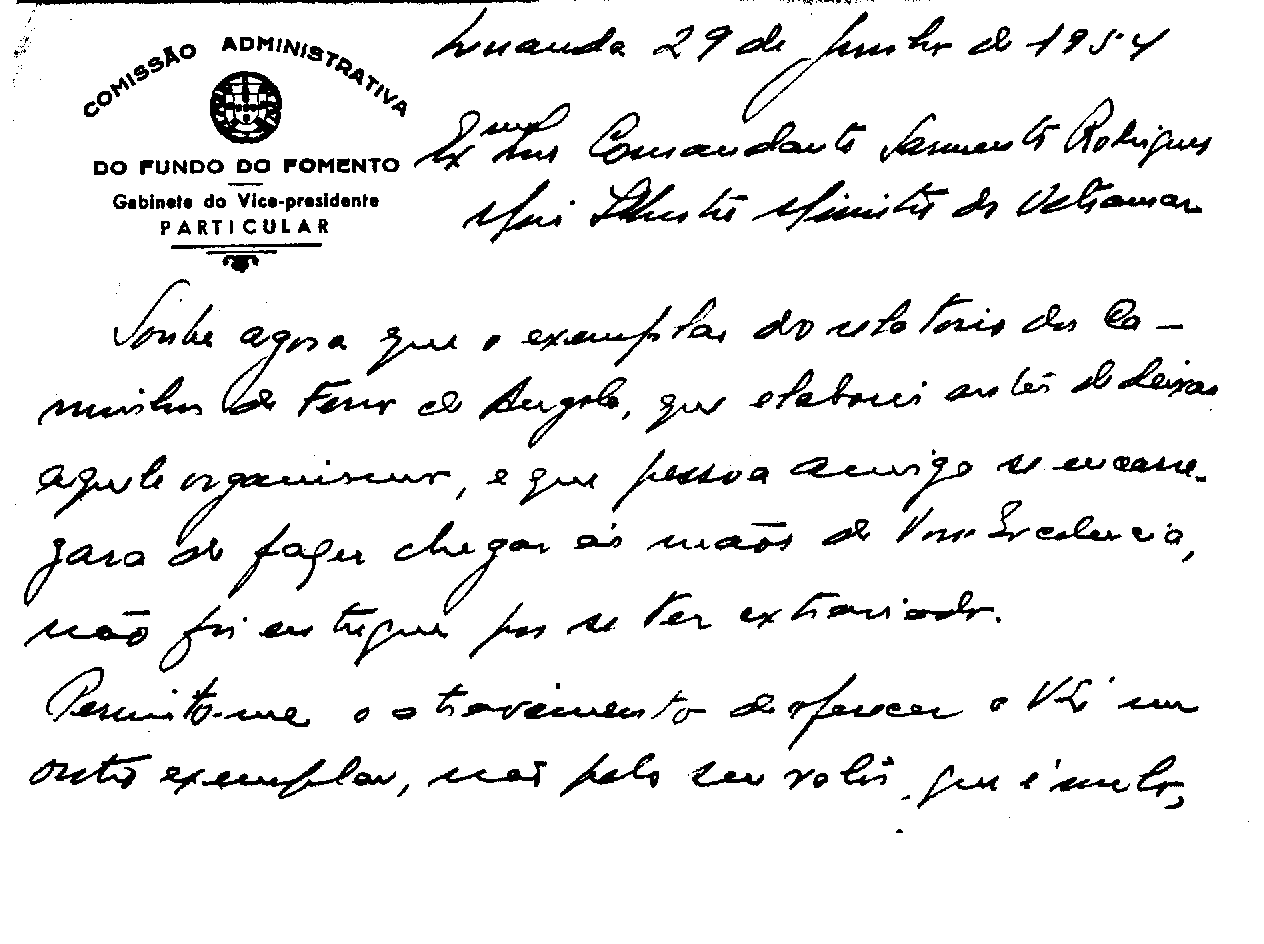 COMISSÃO ADMINISTRATIVA
DO FUNDO DO FOMENTO
Gabinete do Vice-presidente
PARTICULAR
Luanda 29 de Junho de 1954
Exmo Snr Comandante Sarmento Rodrigues
Mui Ilustre Ministro do Ultramar
Soube agora que o exemplar do relatorio dos Ca-
minhos de Ferro de Angola, que elaborei antes de deixar
aquele organismo, e que pessoa amiga se encarre-
gara de fazer chegar ás mãos de Vossa Excelencia,
não foi entregue por se ter extraviado.
Permito-me o atrevimento de oferecer a V. Exª um
outro exemplar, não pelo seu valor, que é nulo,